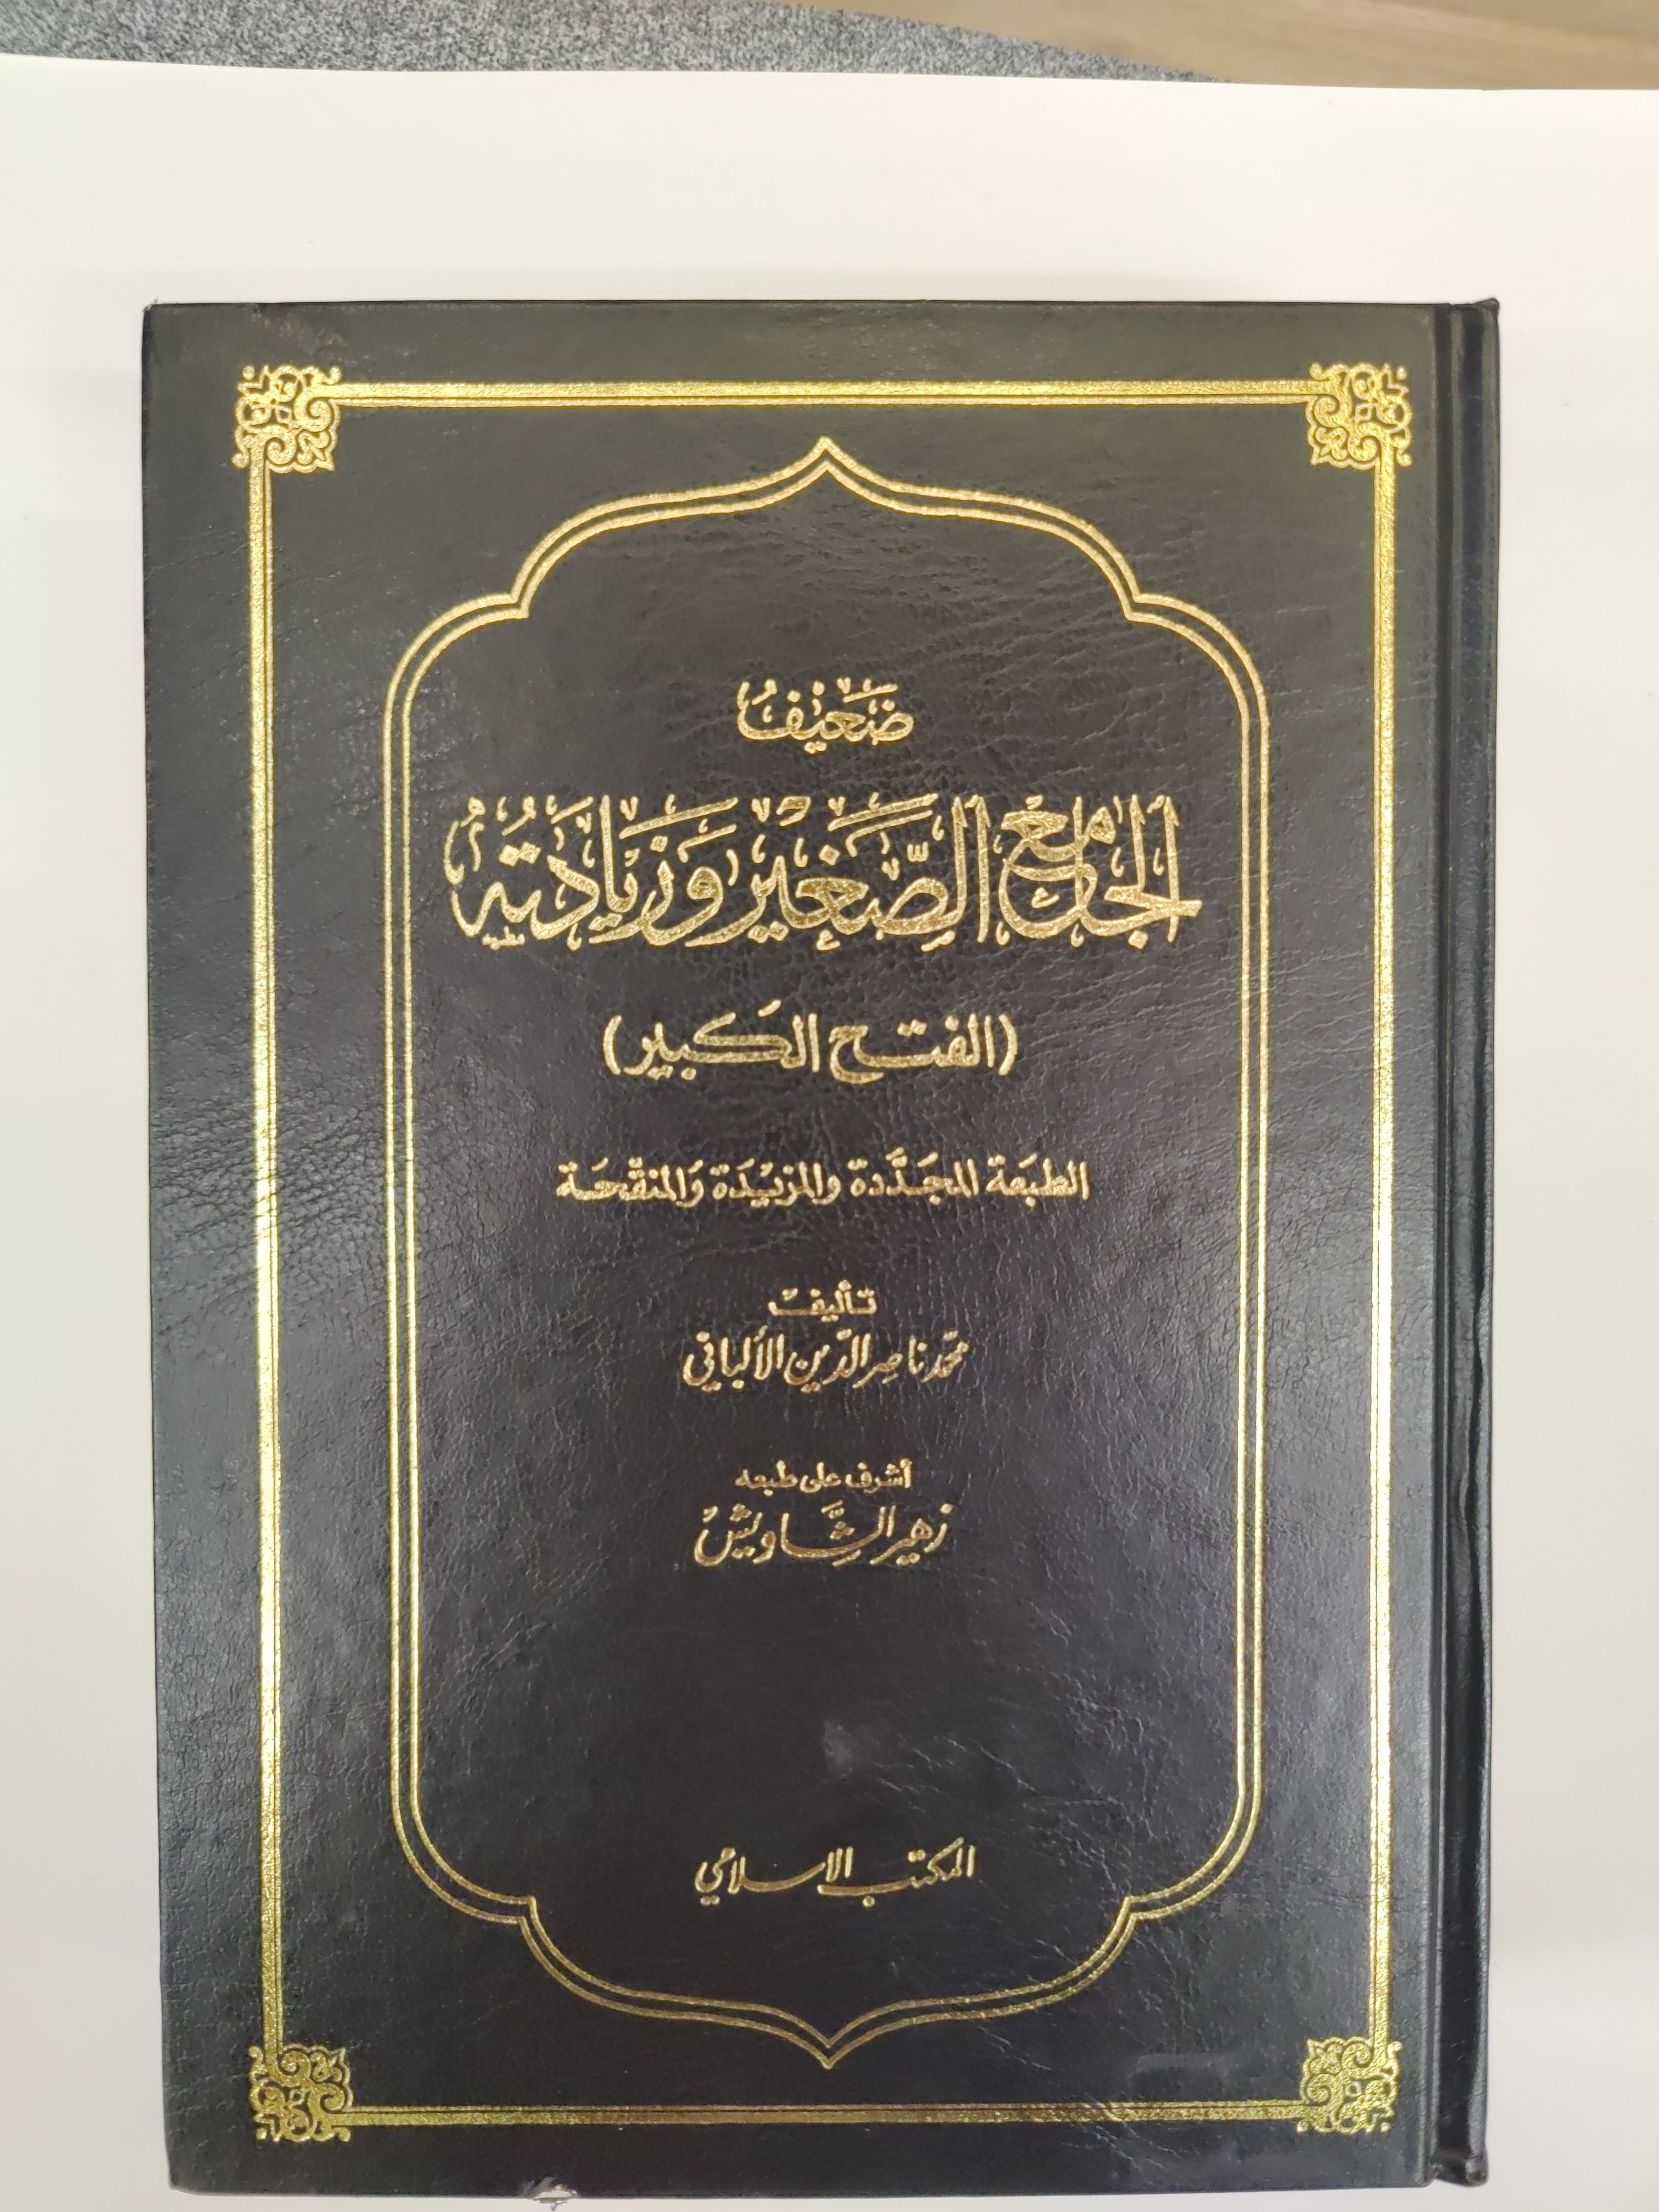 ضَعَيْفُ
الجَامِعُ الصَّغَيْرِ وَزِيَادَتُهُ
(الفتح الكبير)
الطبعَة المجَدَّدة والمزيْدَة وَالمنقحَة
تأليف
محمّد ناصر الدّين الألباني
أشرف على طبعه
زهير الشَّاويش
المكتب الإسلامي